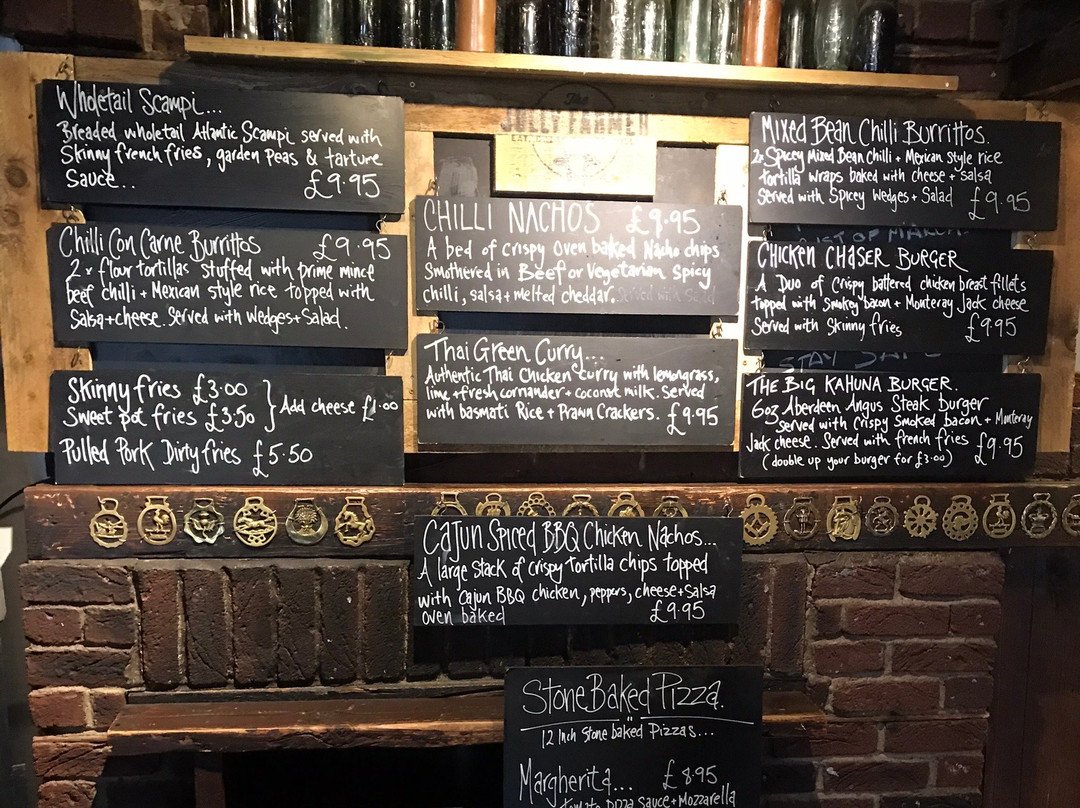 Wholetail Scampi...
Breaded wholetail Atlantic Scampi served with
Skinny french fries, garden Peas & tarture
Sauce..
£9.95
Chilli Con Carne Burrittos £9.95
2 x flour tortillas stuffed with prime mince
beef chilli + Mexican style rice topped with
Salsa + cheese. Served with wedges + Salad.
Skinny fries £3.00
Sweet pot fries £3.50
Add cheese £1.00
Pulled Pork Dirty fries £5.50
The
JOLLY FARMER
CHILLI NACHOS £9.95
A bed of crispy oven baked Nacho chips
Smothered in Beef or Vegetarian Spicy
chilli, salsa + melted cheddar. Served with Salad
Thai Green Curry...
Authentic Thai Chicken curry with lemongrass,
lime + fresh corriander + coconut milk. Served
with basmati Rice + Prawn Crackers. £9.95
Mixed Bean Chilli Burrittos.
2x Spicey Mixed Bean chilli + Mexican style rice
tortilla wraps baked with cheese + salsa
Served with Spicey Wedges + Salad £9.95
OF MARCH
Chicken Chaser Burger
A Duo of Crispy battered chicken breast fillets
topped with smokey bacon + Monteray Jack cheese
Served with Skinny fries £9.95
STAY SAFE
THE BIG KAHUNA BURGER.
6oz Aberdeen Angus Steak burger
Served with crispy smoked bacon + Monteray
Jack cheese. Served with french fries £9.95
(double up your burger for £3.00)
Cajun Spiced BBQ Chicken Nachos...
A large stack of crispy tortilla chips topped
with Cajun BBQ chicken, peppers, cheese + Salsa
oven baked £9.95
Stone Baked Pizza.
12 Inch Stone baked Pizzas...
Margherita... £8.95
tomato pizza sauce + Mozzarella